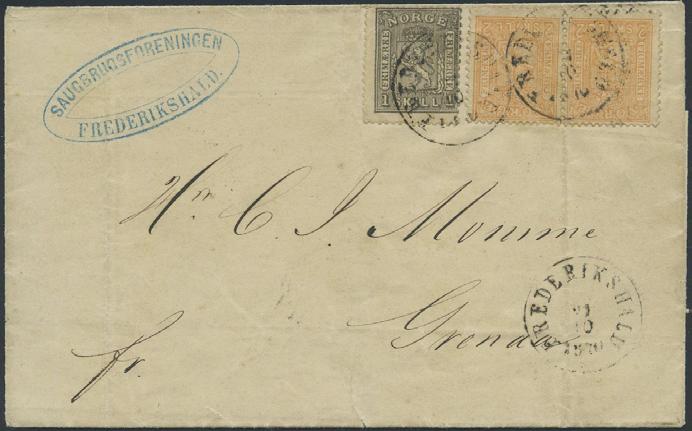 SAUGBRUGSFORENINGEN
FREDERIKSHALD.
NORGE
FRIMÆRKE
1 SKILL
Hrr C. J. Momme
Grenaa
fr.
FREDERIKSHALD
21
10
1870